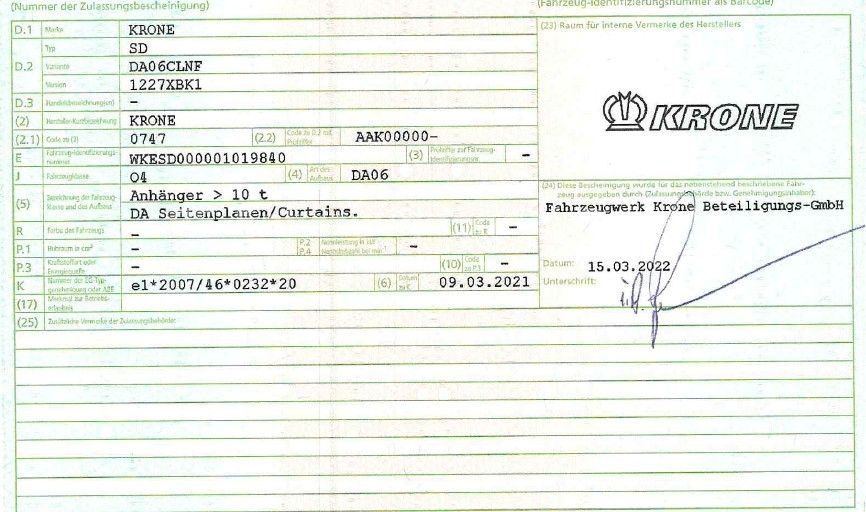 (Nummer der Zulassungsbescheinigung)
(Fahrzeug-Identifizierungsnummer als Barcode)
D.1 Marke KRONE
Typ SD
D.2 Variante DA06CLNF
Version 1227XBK1
D.3 Handelsbezeichnung(en) –
(2) Hersteller-Kurzbezeichnung KRONE
(2.1) Code zu (2) 0747 (2.2) Code zu D.2 mit Prüfziffer AAK00000-
E Fahrzeug-Identifizierungs-nummer WKESD000001019840 (3) Prüfziffer zur Fahrzeug-Identifizierungsnr. –
J Fahrzeugklasse O4 (4) Art des Aufbaus DA06
(5) Bezeichnung der Fahrzeug-klasse und des Aufbaus Anhänger > 10 t
DA Seitenplanen/Curtains.
R Farbe des Fahrzeugs – (11) Code zu R –
P.1 Hubraum in cm³ – P.2 P.4 Nennleistung in kW Nenndrehzahl bei min⁻¹ –
P.3 Kraftstoffart oder Energiequelle – (10) Code zu P.3 –
K Nummer der EG-Typ-genehmigung oder ABE e1*2007/46*0232*20 (6) Datum zu K 09.03.2021
(17) Merkmal zur Betriebs-erlaubnis
(25) Zusätzliche Vermerke der Zulassungsbehörde:
(23) Raum für interne Vermerke des Herstellers
KRONE
(24) Diese Bescheinigung wurde für das nebenstehend beschriebene Fahr-
zeug ausgegeben durch (Zulassungsbehörde bzw. Genehmigungsinhaber):
Fahrzeugwerk Krone Beteiligungs-GmbH
Datum: 15.03.2022
Unterschrift: